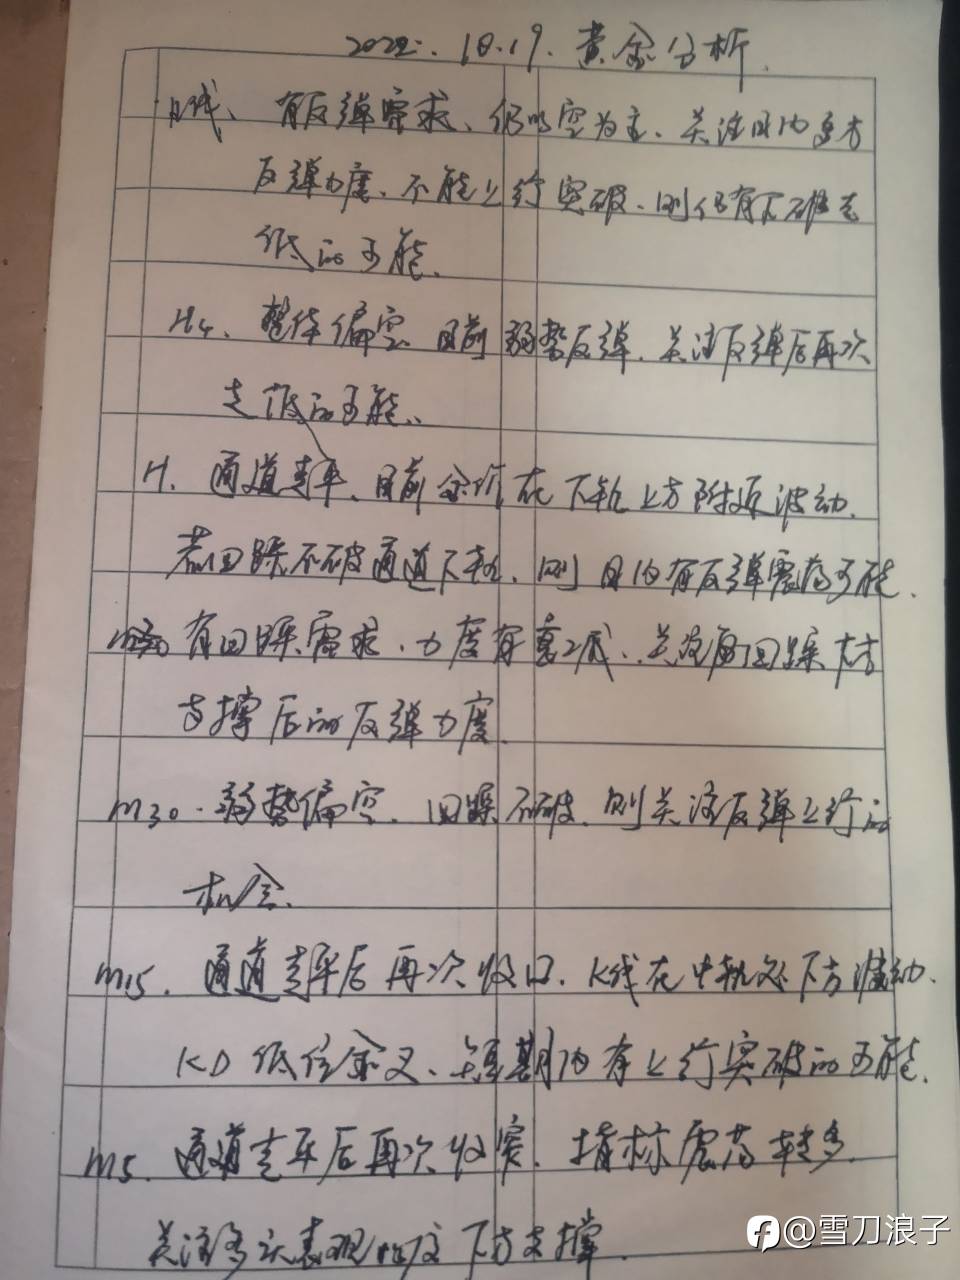 2022.10.19.黄金分析.
日线、有反弹需求、仍以空为主、关注日内多方
反弹力度、不能上行突破、则仍有下破走
低的可能.
H4、整体偏空.目前弱势反弹.关注反弹后再次
走低的可能.
H.通道走平、目前金价在下轨上方附近波动.
若回踩不破通道下轨、则日内有反弹震荡可能.
有回踩需求.力度有衰减、关注回踩下方
支撑后的反弹力度.
M30.弱势偏空.回踩不破.则关注反弹上行的
机会.
M15.通道走平后再次收口.K线在中轨处下方波动.
KD低位金叉、短期内有上行突破的可能.
M5.通道走平后再次收窄.指标震荡转多.
关注多头表现以及下方支撑.
@雪刀浪子